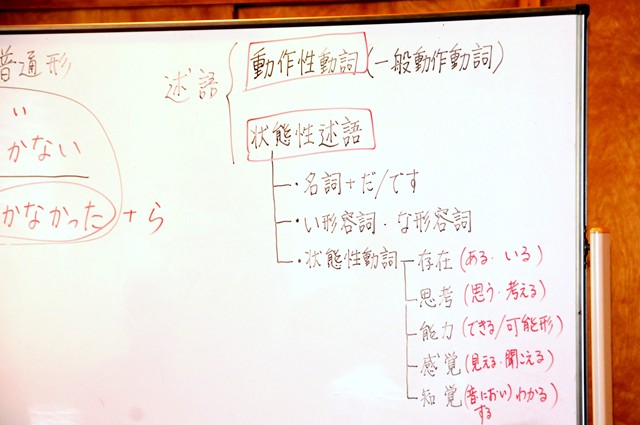 普通形
い
かない
かなかった + ら
述語
動作性動詞 (一般動作動詞)
状態性述語
・名詞+だ/です
・い形容詞・な形容詞
・状態性動詞 ― 存在 (ある・いる)
思考 (思う・考える)
能力 (できる/可能形)
感覚 (見える・聞こえる)
知覚 (音・におい) わかる)
する